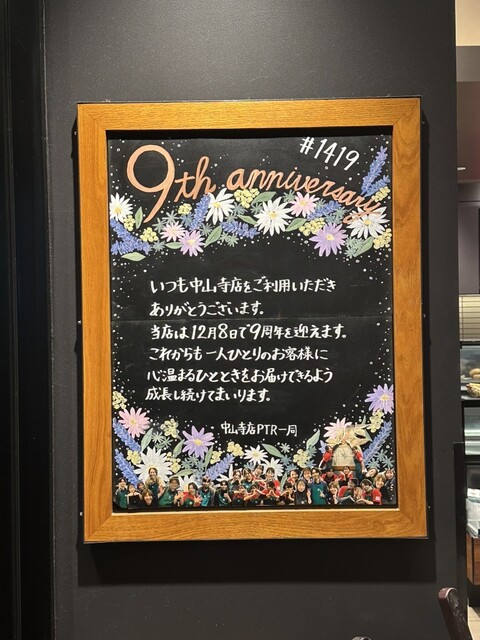 #1419
9th anniversary
いつも中山寺店をご利用いただき
ありがとうございます。
当店は12月8日で9周年を迎えます。
これからも一人ひとりのお客様に
心温まるひとときをお届けできるよう
成長し続けてまいります。
中山寺店PTR一同